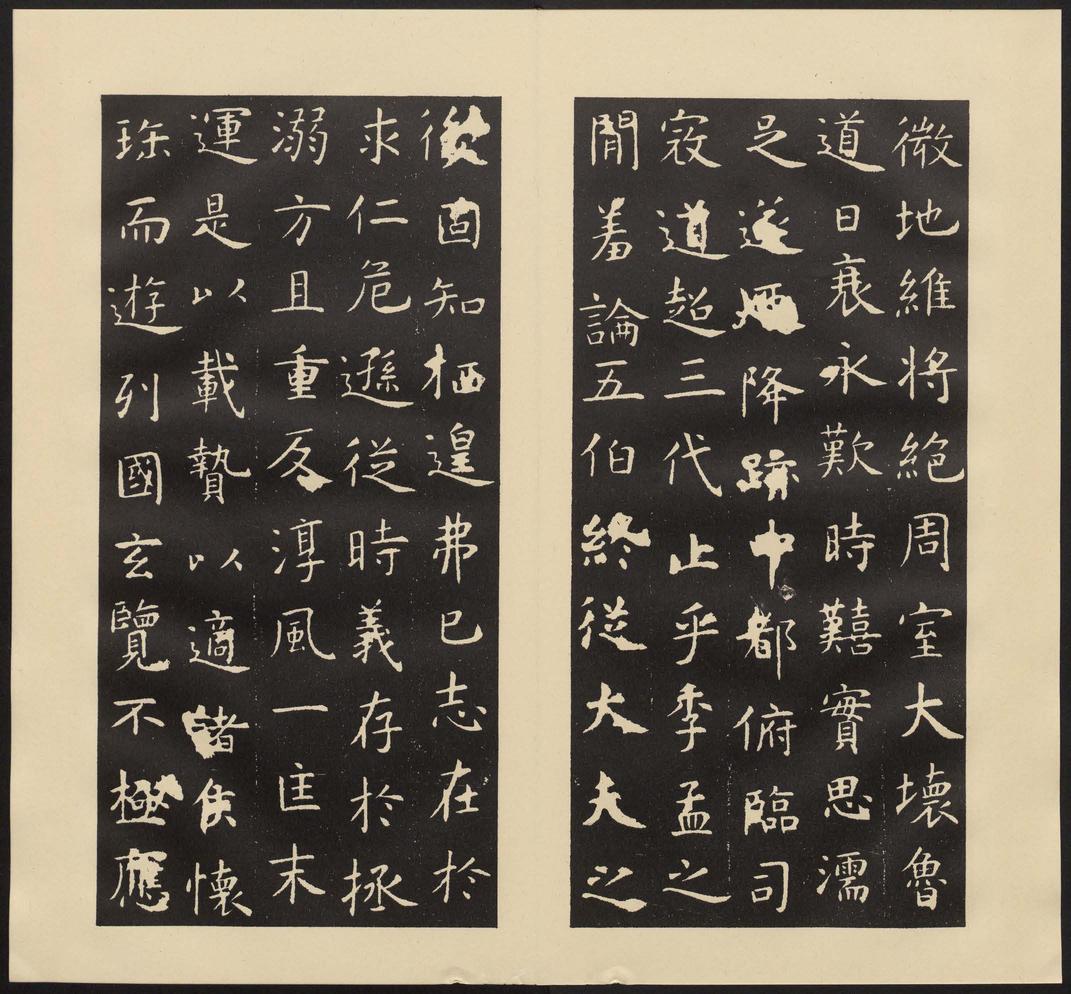 微地維將絶周室大壞魯
道日衰永歎時囏實思濡
足遂迺降跡中都俯臨司
寇道超三代止乎季孟之
閒羞論五伯終從大夫之
後固知栖遑弗已志在於
求仁危遜從時義存於拯
溺方且重反淳風一匡末
運是以載贄以適諸侯懷
珎而遊列國玄覽不極應